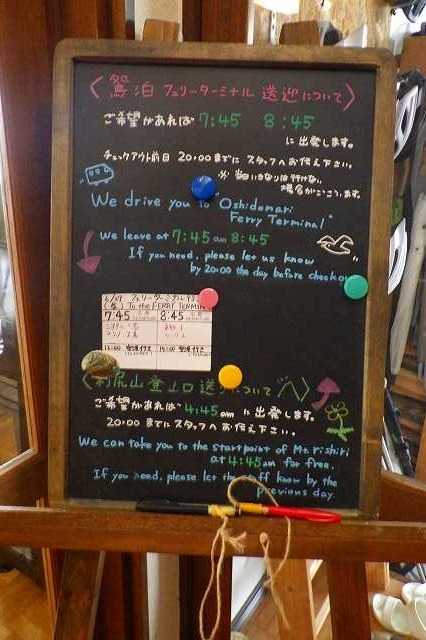 〈鴛泊フェリーターミナル送迎について〉
ご希望があれば 7:45 8:45
に出発します。
チェックアウト前日 20:00までに スタッフへお伝え下さい。
※当日いきなりは行けない
場合がございます。
We drive you to Oshidomari
Ferry Terminal
We leave at 7:45 am 8:45
If you need, please let us know
by 20:00 the day before checkou
To the FERRY TERMIN
7:45 8:45
〈利尻山登山口送 ついて〉
ご希望があれば 4:45am に出発します。
20:00 までにスタッフへお伝え下さい。
We can take you to the start point of Mt. rishiri
at 4:45 am for free.
If you need, please let the staff know by the
previous day.